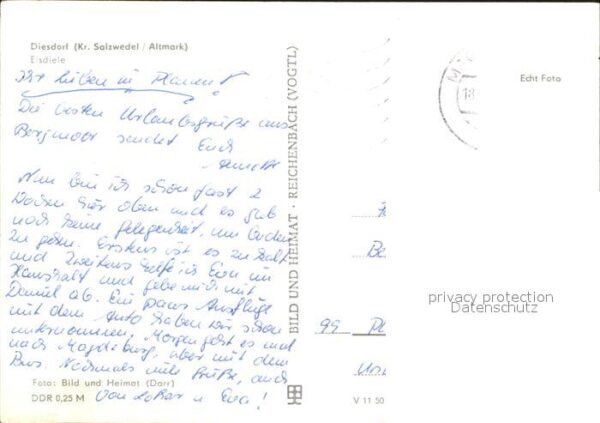 Diesdorf (Kr. Salzwedel / Altmark)
Eisdiele
Ihr Lieben in Plauen!
Die besten Urlaubsgrüße aus
Bergmoor sendet Euch
Annett
Nun bin ich schon fast 2
Wochen hier oben und es gab
noch keine Gelegenheit, um baden
zu gehen. Erstens ist es zu kalt
und zweitens helfe ich Eva im
Haushalt und gebe mich mit
Daniel ab. Ein paar Ausflüge
mit dem Auto haben wir schon
unternommen. Morgen geht es mal
nach Magdeburg, aber mit dem
Bus. Nochmals viele Grüße, auch
von Lothar u. Eva!
Foto: Bild und Heimat (Darr)
DDR 0,25 M
BILD UND HEIMAT · REICHENBACH (VOGTL)
V 11 50
Echt Foto
18
99 Pl
privacy protection
Datenschutz